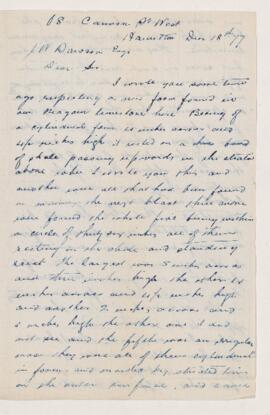 08 Cannon St West
Hamilton Dec 18th 79
J W Dawson Esq
Dear Sir
I wrote you some time
ago respecting a new form found in
our Niagara limestone here Being of
a cylindrical form inches across and
inches high it rested on a thin band
of shale passing upwards in the strata
above when I wrote you this and
another were all that had been found
in the next blast three more
were found the whole five being within
a circle of thirty six inches all of them
resting on the shale and standing
erect The largest was 5 inches across
and three inches high the other 4
inches across and inches high
and another 2 inches across and
inches high the other one I did
not see and the fifth was an irregular
mass they were all of them cylindrical
in form and marked by striated lines
on the outer surface and